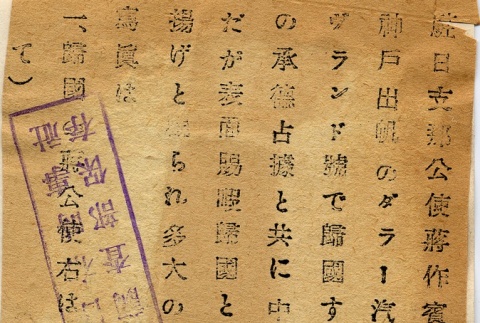 駐日支那公使蔣作賓
神戸出帆のダラー汽
ランド號で歸國す
の承德占據と共に中
だが表面賜暇歸國と
揚げと られ多大の
寫眞は
一、歸國 公使右
て）
部保存
査
社